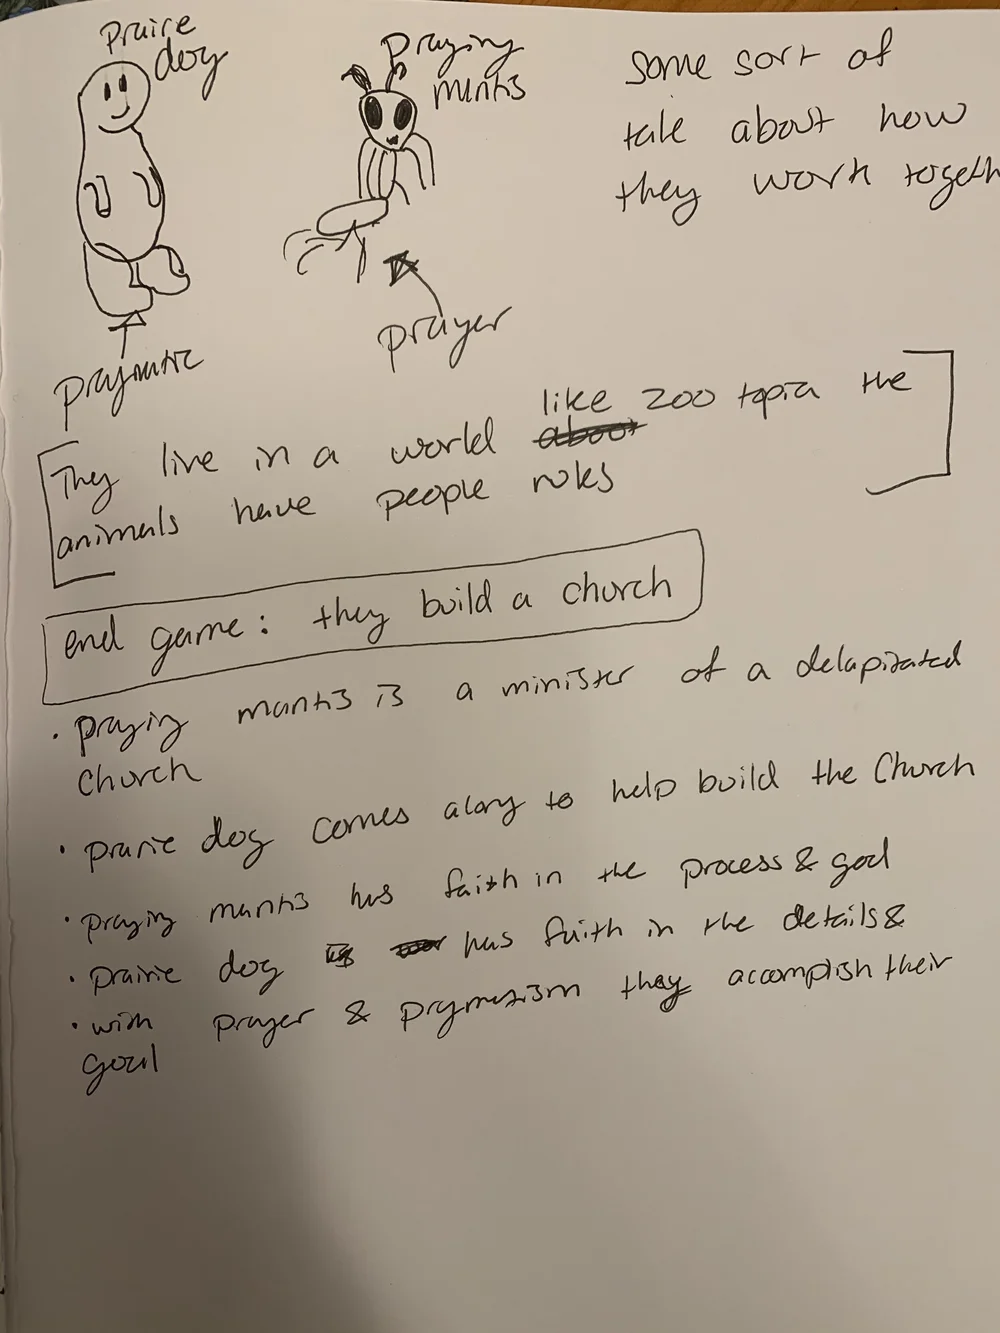 Praire
dog
Praying
mantis
Some sort of
tale about how
they work togeth
pragmatic
prayer
They live in a world like zootopia the
animals have people roles
end game: they build a church
• praying mantis is a minister of a delapitated
church
• prarie dog comes along to help build the Church
• praying mantis has faith in the process & god
• prairie dog has faith in the details &
• with prayer & prgmatism they accomplish their
goal